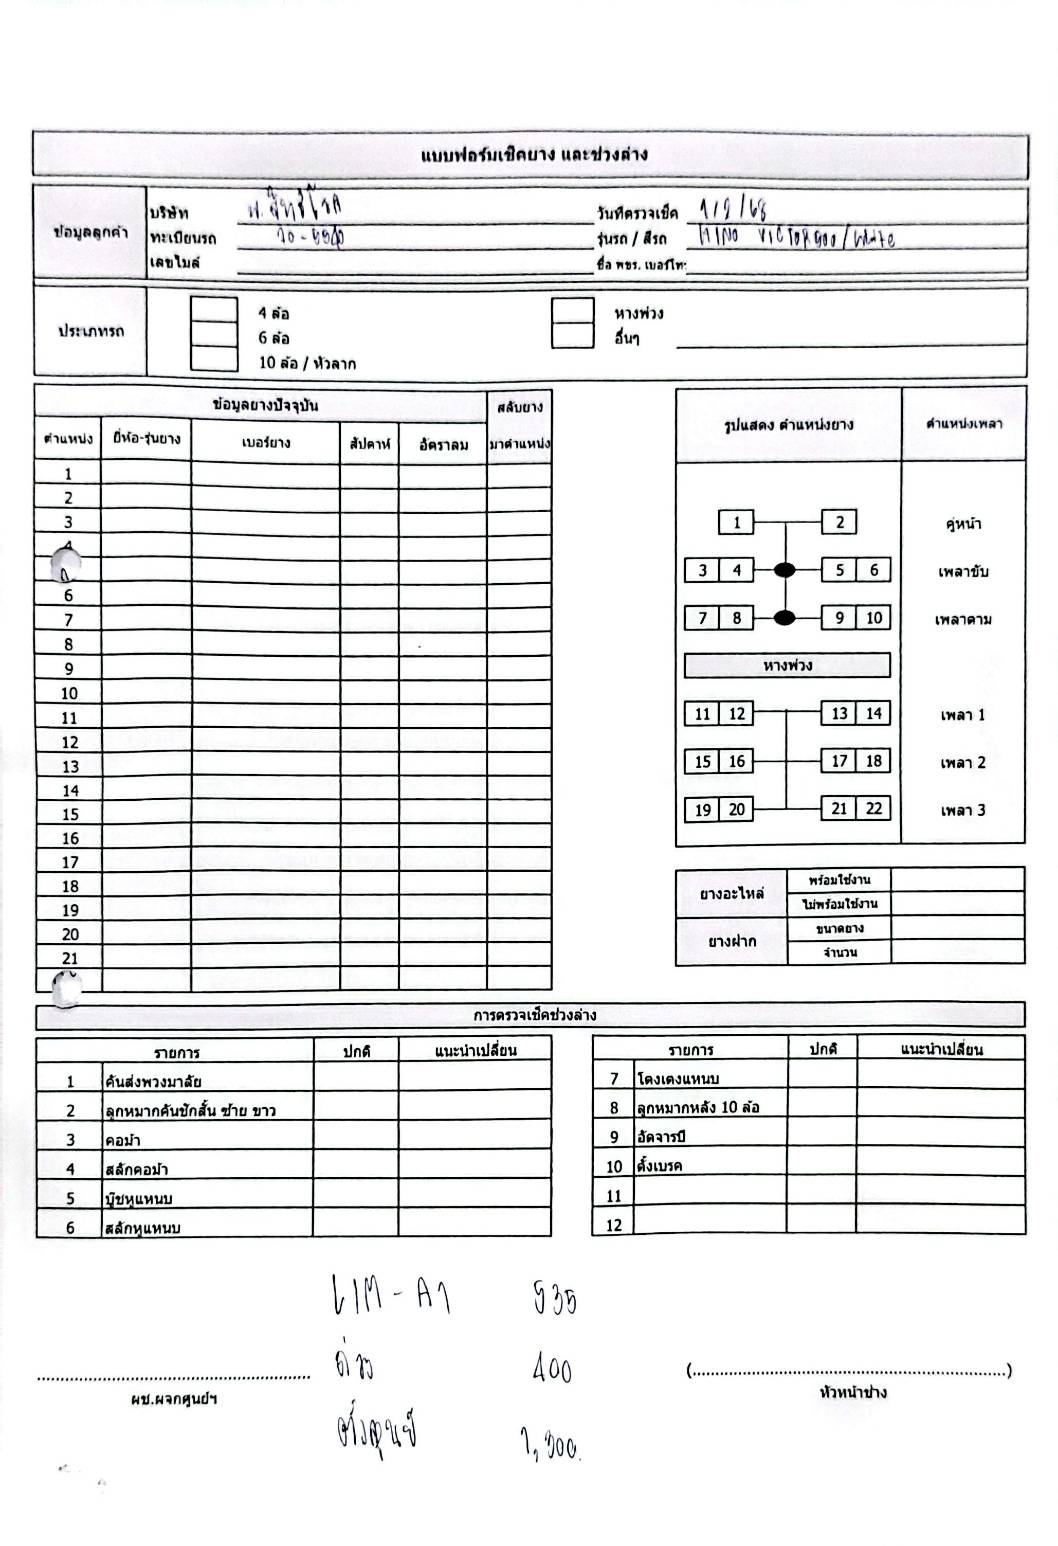 แบบฟอร์มเช็คยาง และช่วงล่าง
ข้อมูลลูกค้า
บริษัท
วันที่ตรวจเช็ค 1/2/68
ทะเบียนรถ
รุ่นรถ / สีรถ HINO VICTOR 500/White
เลขไมล์
ชื่อ พขร. เบอร์โทร
ประเภทรถ
4 ล้อ หางพ่วง
6 ล้อ อื่นๆ
10 ล้อ / หัวลาก
ข้อมูลยางปัจจุบัน สลับยาง
ตำแหน่ง ยี่ห้อ-รุ่นยาง เบอร์ยาง สัปดาห์ อัตราลม มาตำแหน่ง
1
2
3
4
6
7
8
9
10
11
12
13
14
15
16
17
18
19
20
21
รูปแสดง ตำแหน่งยาง ตำแหน่งเพลา
1 2 คู่หน้า
3 4 5 6 เพลาขับ
7 8 9 10 เพลาตาม
หางพ่วง
11 12 13 14 เพลา 1
15 16 17 18 เพลา 2
19 20 21 22 เพลา 3
ยางอะไหล่ พร้อมใช้งาน
ไม่พร้อมใช้งาน
ยางฝาก ขนาดยาง
จำนวน
การตรวจเช็คช่วงล่าง
รายการ ปกติ แนะนำเปลี่ยน
1 คันส่งพวงมาลัย
2 ลูกหมากคันชักสั้น ซ้าย ขาว
3 คอม้า
4 สลักคอม้า
5 บู๊ชหูแหนบ
6 สลักหูแหนบ
รายการ ปกติ แนะนำเปลี่ยน
7 โตงเตงแหนบ
8 ลูกหมากหลัง 10 ล้อ
9 อัดจารบี
10 ตั้งเบรค
11
12
LIM-A1 535
ถ่วง 400
ตั้งศูนย์ 1,300
ผช.ผจกศูนย์ฯ
(..........)
หัวหน้าช่าง